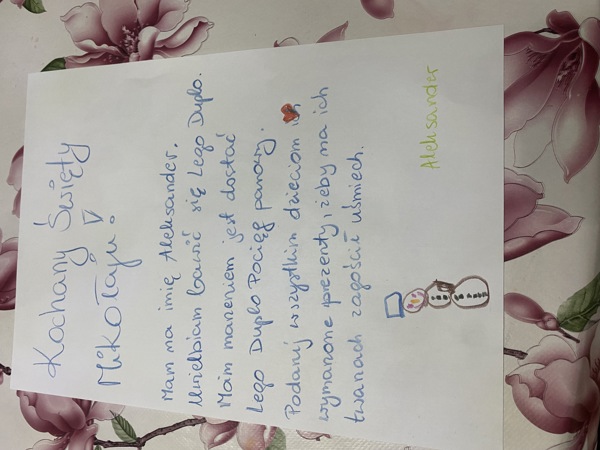 Kochany Święty
Mikołaju!
Mam na imię Aleksander.
Uwielbiam bawić się Lego Duplo.
Moim marzeniem jest dostać
Lego Duplo Pociąg parowy.
Podaruj wszystkim dzieciom ich
wymarzone prezenty, żeby na ich
twarzach zagościł uśmiech.
Aleksander